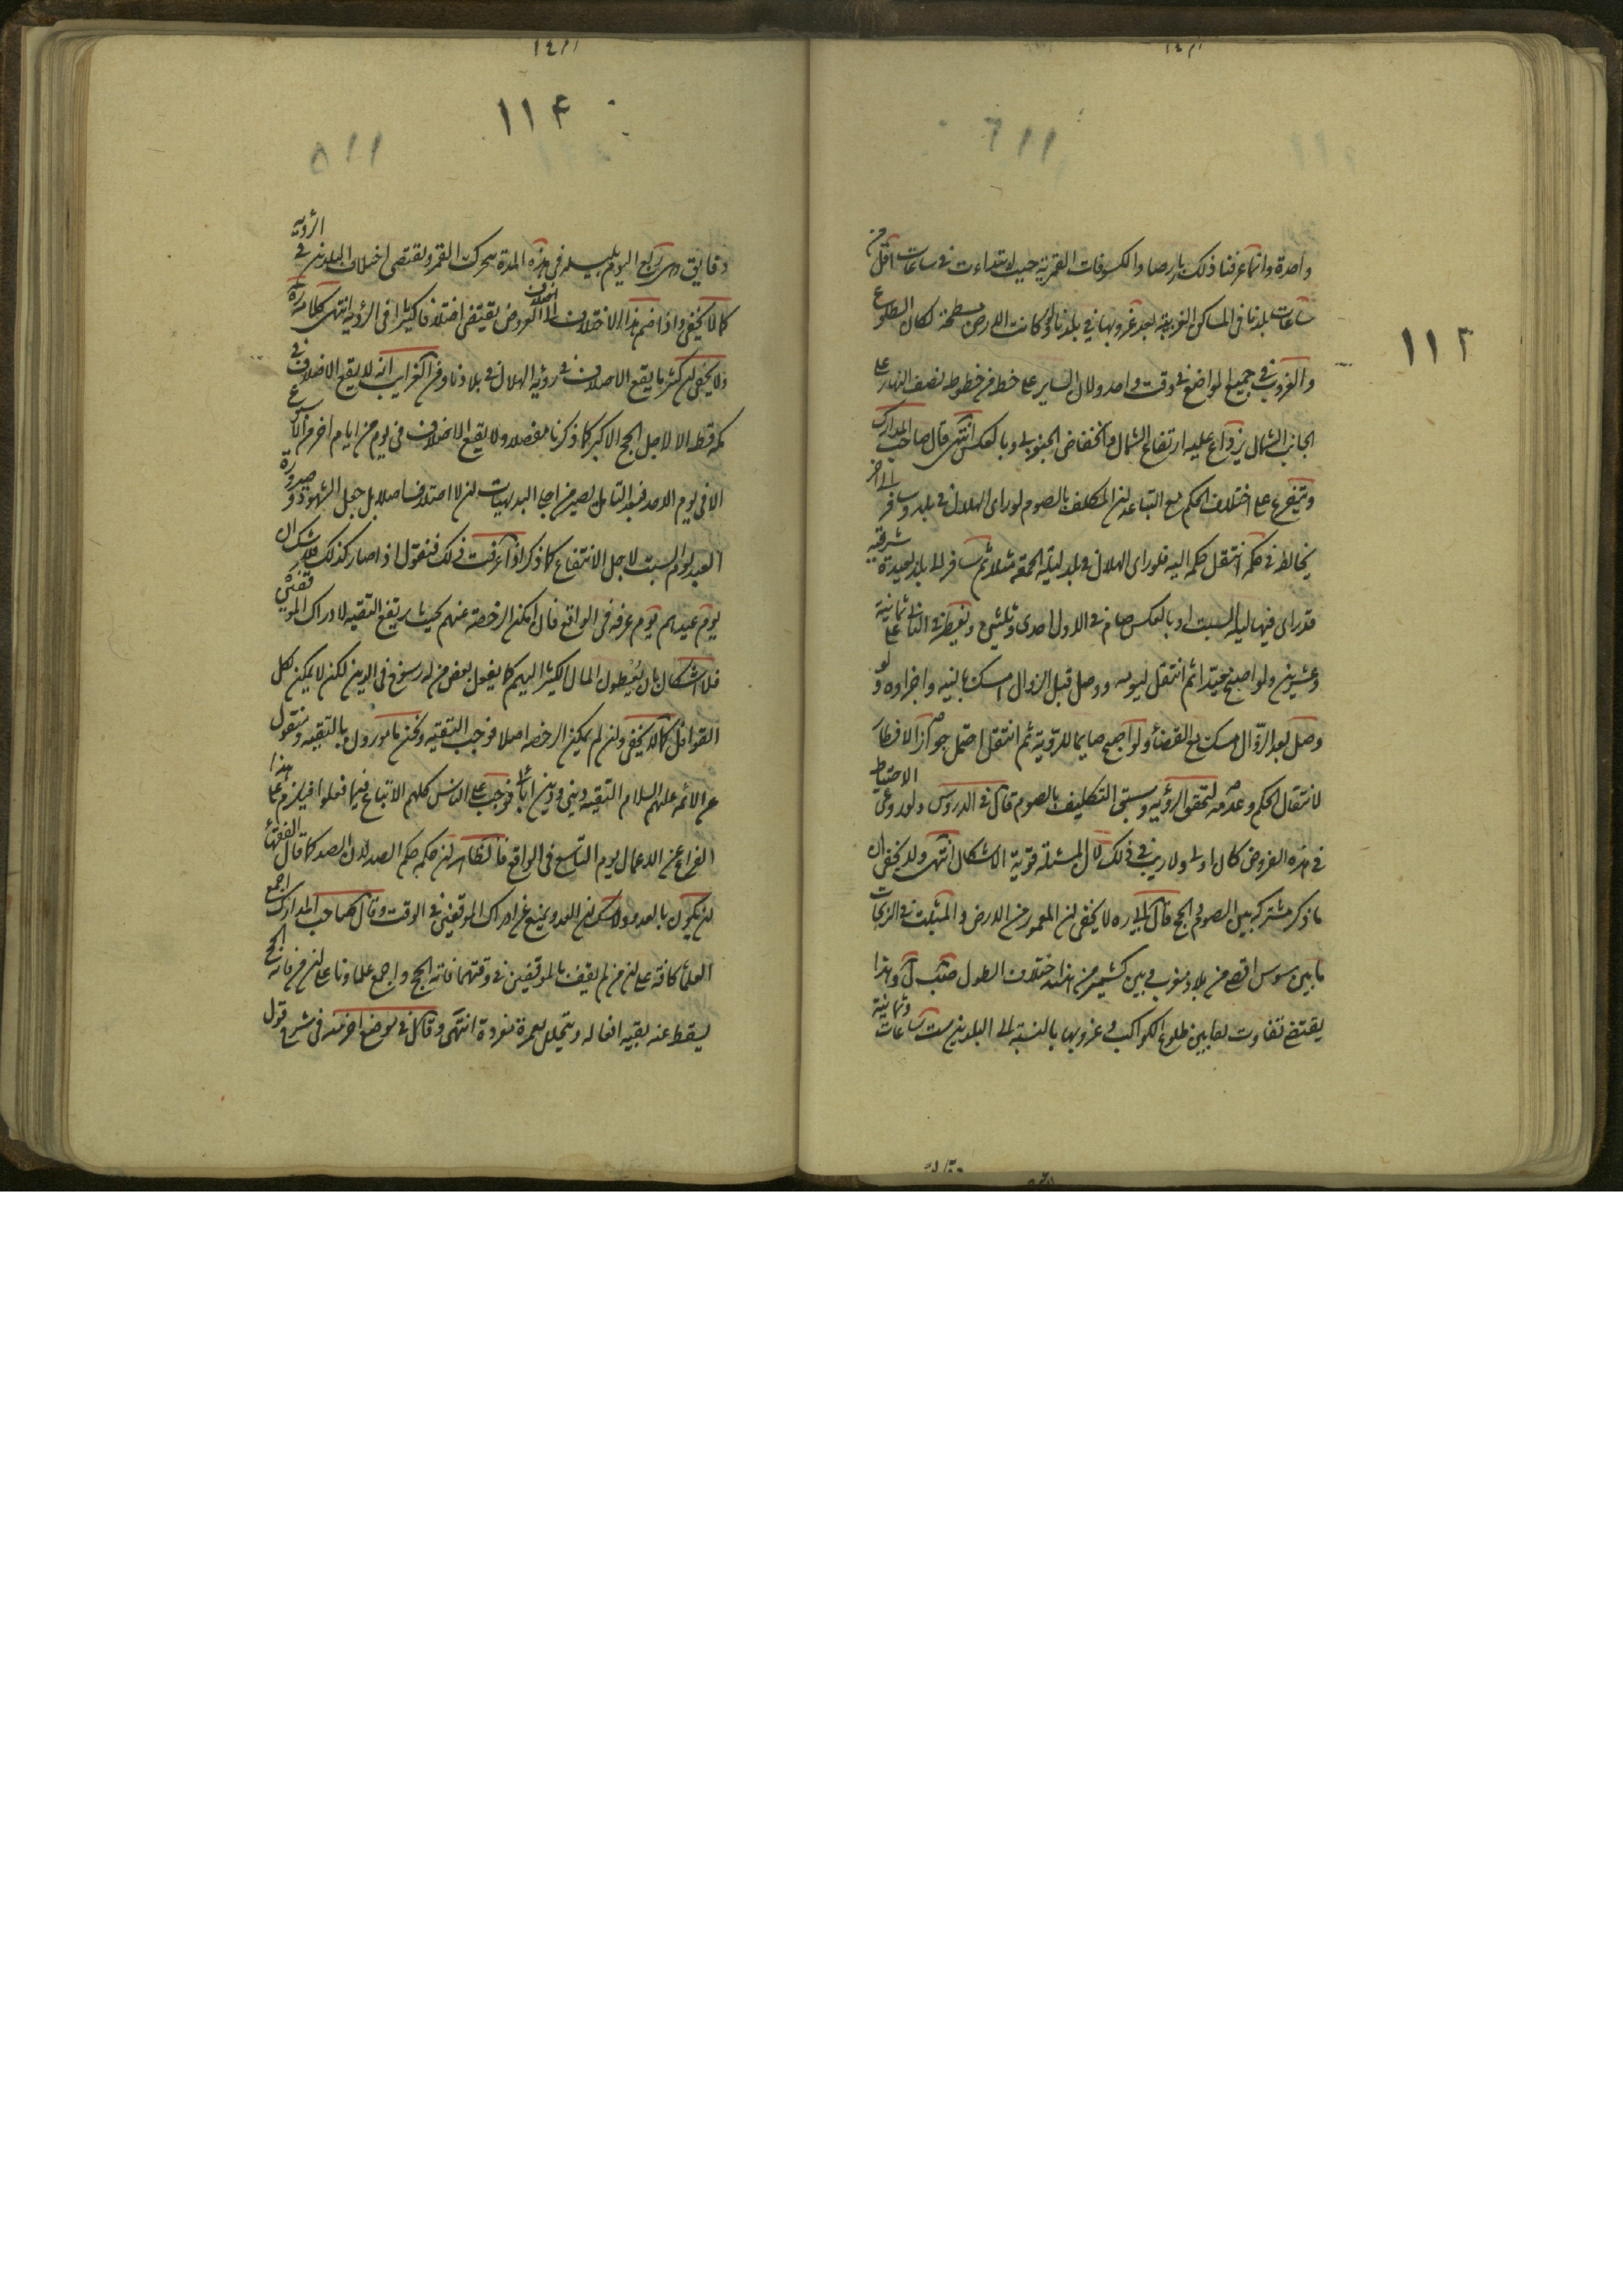 واحدة وانما عرفنا ذلك بارصاد الكسوفات القمرية حيث ابتداءت في ساعات اقل من
ساعات بلدنا في المساكن الغربية بعد غروبها في بلدنا ولو كانت الارض مسطحة لكان الطلوع
والغروب في جميع المواضع في وقت واحد ولان السير على خط من خطوط نصف النهار على
الجانب الشمالي يزداد عليه ارتفاع الشمالي وانخفاض الجنوبي وبالعكس انتهى قال صاحب المدارك
ويتفرع على اختلاف الحكم مع التباعد ان المكلف بالصوم لو راى الهلال في بلد وسافر الى اخر
يخالفه في حكمه انتقل حكمه اليه فلو راى الهلال في بلد ليلة الجمعة مثلا ثم سافر الى بلد بعيدة شرقية
قد راى فيها ليلة السبت او بالعكس صام في الاول احدى وثلثين ويفطر في الثاني على ثمانية
وعشرين ولو اصبح معيدا ثم انتقل ليومه ووصل قبل الزوال امسك بالنية واجزاه ولو
وصل بعد الزوال امسك مع القضاء ولو اصبح صايما للرؤية ثم انتقل احتمل جواز الافطار
لانتقال الحكم وعدمه لتحقق الرؤية وسبق التكليف بالصوم قال في الدروس ولو روعي الاحتياط
في هذه الفروض كان اولى ولا ريب في ذلك لان المسئلة قوية الاشكال انتهى ولا يخفى ان
ما ذكر مشترك بين الصوم والحج قال لا يخفى ان المعمور من الارض والمثبت في الزيجات
ما بين سوس اقصى من بلاد مغرب وبين كشمير من الهند اختلاف الطول وهذا
يقتضي تفاوت بين طلوع الكواكب وغروبها بالنسبة الى البلدين ست ساعات وثمانية
١١٢
١١۴
دقايق اليوم بليله في هذه المدة يتحرك القمر ويقتضي اختلاف البلدين في الرؤية
كما لا يخفى واذا ضم هذا الاختلاف الى اختلاف العروض يقتضي اختلافا كثيرا في الرؤية انتهى كلامه
ولا يخفى ان كثيرا ما يقع الاختلاف في رؤية الهلال في بلادنا ومن الغرايب انه لا يقع الاختلاف في
مكه قط الا لاجل الحج الاكبر كما ذكرنا مفصلا ولا يقع الاختلاف في يوم من ايام اخر من الاسبوع
الا في يوم الاحد فبعد التامل يصير من اجلى البديهيات ان لا اختلاف اصلا بل جعل الشهود وصيرورة
العيد يوم السبت لاجل الانتفاع كما ذكر اذا عرفت ذلك فنقول اذا صار كذلك فلا شك ان
يوم عيدهم يوم عرفه في الواقع فان امكن الرخصة عنهم بحيث يرتفع التقيه لادراك الموقفين
فلا اشكال بان يعطون المال الكثير اليهم كما يفعل بعض من له رسوخ في الدين لكن لا يمكن لكل
القوافل كما لا يخفى وان لم يمكن الرخصه اصلا فوجب التقيه ونحن مامورون بالتقيه ومنقول
عن الائمه عليهم السلام التقيه ديني ودين ابائي فوجب على الناس كلهم الاتباع فيما فعلوا فيلزم على هذا
الفراغ عن الاعمال يوم التاسع في الواقع فالظاهر ان حكمه حكم الصد لان الصد كما قال الفقهاء
ان يكون بالعدو ولا شك ان العدو يمنع عن ادراك الموقفين في الوقت وقال صاحب المدارك اجمع
العلماء كافة على ان من لم يقف بالموقفين في وقتهما فاته الحج واجمع علماونا على ان من فاته الحج
يسقط عنه بقيه افعاله ويتحلل بعمرة مفردة انتهى وقال في موضع اخر منه في شرح قول